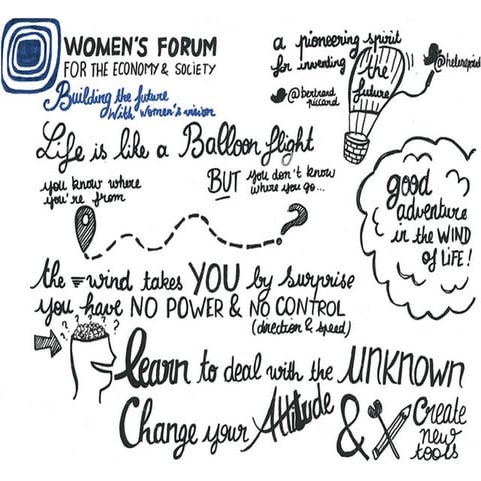 WOMEN'S FORUM
FOR THE ECONOMY & SOCIETY
Building the future
with women's vision
a pioneering spirit
for inventing the
future
@bertrand
piccard
Life is like a Balloon flight
you know where
you're from
BUT you don't know
where you go...
?
good
adventure
in the WIND
of LiFE!
the wind takes YOU by surprise
you have NO POWER & NO CONTROL
(direction & speed)
? ? ? ? ?
learn to deal with the UNKNOWN
Change your Attitude
& Create
new
tools